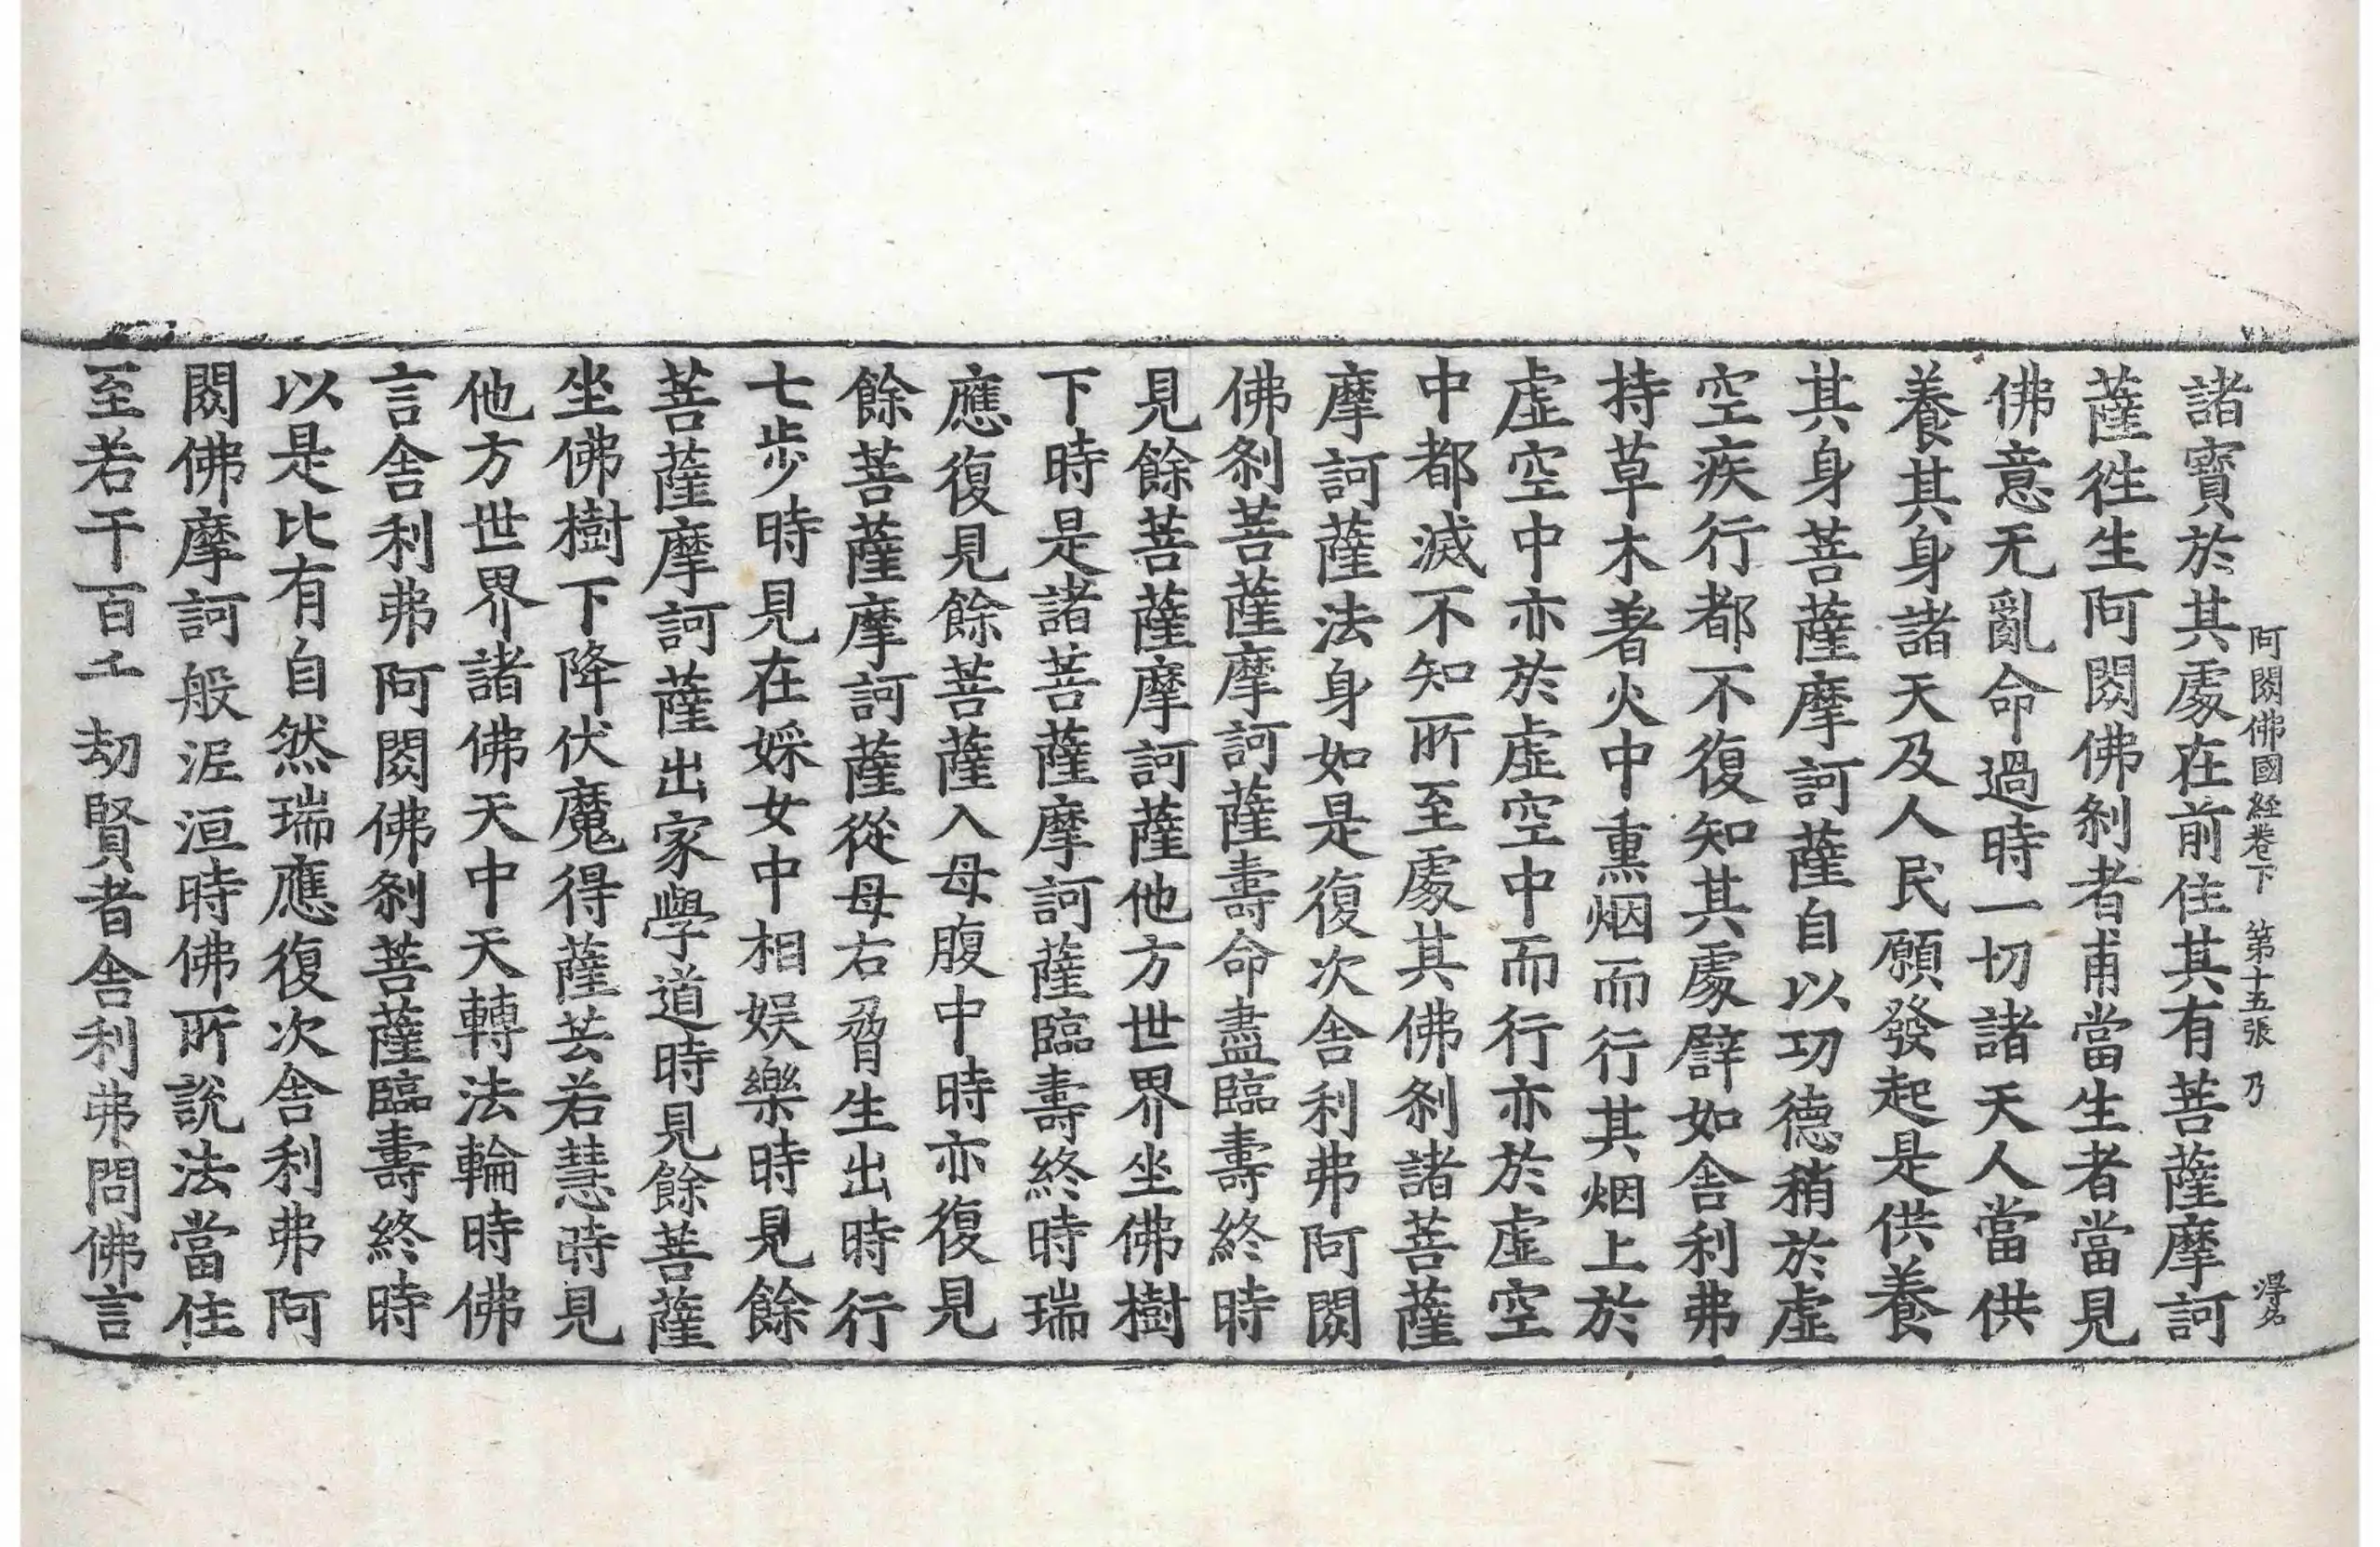 阿閦佛國経卷下 第十五張 乃
諸寶於其處在前住其有菩薩摩訶
薩徃生阿閦佛刹者甫當生者當見
佛意无亂命過時一切諸天人當供
養其身諸天及人民願發起是供養
其身菩薩摩訶薩自以功德稍於虛
空疾行都不復知其處譬如舍利弗
持草木著火中熏烟而行其烟上於
虛空中亦於虛空中而行亦於虛空
中都滅不知所至處其佛刹諸菩薩
摩訶薩法身如是復次舍利弗阿閦
佛刹菩薩摩訶薩壽命盡臨壽終時
見餘菩薩摩訶薩他方世界坐佛樹
下時是諸菩薩摩訶薩臨壽終時瑞
應復見餘菩薩入母腹中時亦復見
餘菩薩摩訶薩從母右脅生出時行
七步時見在婇女中相娛樂時見餘
菩薩摩訶薩出家學道時見餘菩薩
坐佛樹下降伏魔得薩芸若慧時見
他方世界諸佛天中天轉法輪時佛
言舍利弗阿閦佛刹菩薩臨壽終時
以是比有自然瑞應復次舍利弗阿
閦佛摩訶般泥洹時佛所說法當住
至若干百千劫賢者舍利弗問佛言